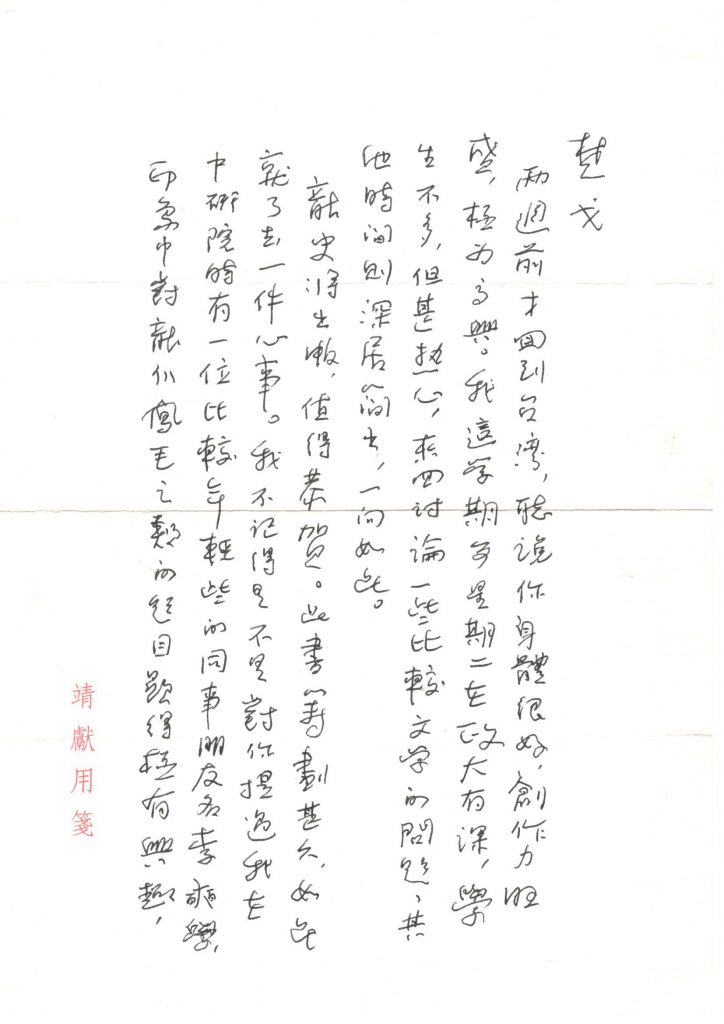 楚戈
兩週前才回到台灣，聽說你身體很好，創作力旺
盛，極为高興。我這学期每星期二在政大有課，學
生不多，但甚热心，來回討論一些比較文学的問題、其
他時間則深居簡出，一向如此。
龍史將出版，值得恭賀。此書籌劃甚久，如此
就了去一件心事。我不記得是不是對你提過我在
中研院時有一位比較年輕些的同事朋友名李奭學，
印象中對龍仈鳳毛之類的題目顯得極有興趣，
靖獻用箋